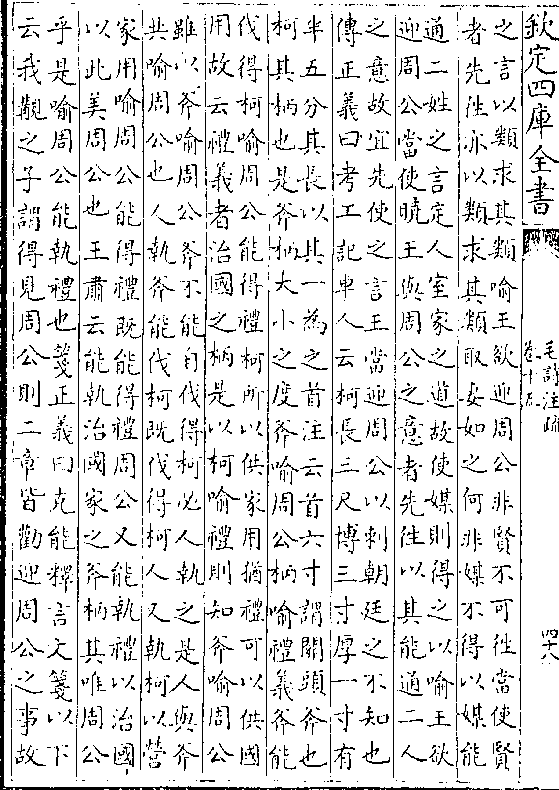 欽定四庫全書
毛詩注疏
卷十五
四十八
之言以類求其類喻王欲迎周公非賢不可往當使賢
者先往亦以類求其類取妻如之何非媒不得以媒能
通二姓之言定人室家之道故使媒則得之以喻王欲
迎周公當使曉王與周公之意者先往以其能通二人
之意故宜先使之言王當迎周公以刺朝廷之不知也
傳正義曰考工記車人云柯長三尺博三寸厚一寸有
半五分其長以其一為之首注云首六寸謂關頭斧也
柯其柄也是斧柄大小之度斧喻周公柄喻禮義斧能
伐得柯喻周公能得禮柯所以供家用猶禮可以供國
用故云禮義者治國之柄是以柯喻禮則知斧喻周公
雖以斧喻周公斧不能自伐得柯必人執之是人與斧
共喻周公也人執斧能伐柯既伐得柯人又執柯以營
家用喻周公能得禮既能得禮周公又能執禮以治國
以此美周公也王肅云能執治國家之斧柄其唯周公
乎是喻周公能執禮也箋正義曰克能釋言文箋以下
云我覯之子謂得見周公則二章皆勸迎周公之事故